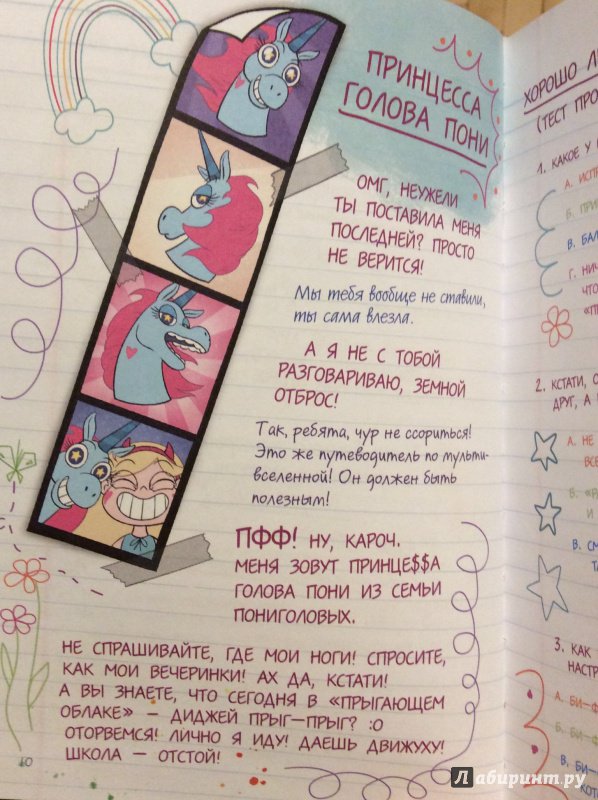 ПРИНЦЕССА
ГОЛОВА ПОНИ
ОМГ, НЕУЖЕЛИ
ТЫ ПОСТАВИЛА МЕНЯ
ПОСЛЕДНЕЙ? ПРОСТО
НЕ ВЕРИТСЯ!
Мы тебя вообще не ставили,
ты сама влезла.
А Я НЕ С ТОБОЙ
РАЗГОВАРИВАЮ, ЗЕМНОЙ
ОТБРОС!
Так, ребята, чур не ссориться!
Это же путеводитель по мульти-
вселенной! Он должен быть
полезным!
ПФФ! НУ, КАРОЧ.
МЕНЯ ЗОВУТ ПРИНЦЕ$$А
ГОЛОВА ПОНИ ИЗ СЕМЬИ
ПОНИГОЛОВЫХ.
НЕ СПРАШИВАЙТЕ, ГДЕ МОИ НОГИ! СПРОСИТЕ,
КАК МОИ ВЕЧЕРИНКИ! АХ ДА, КСТАТИ!
А ВЫ ЗНАЕТЕ, ЧТО СЕГОДНЯ В «ПРЫГАЮЩЕМ
ОБЛАКЕ» — ДИДЖЕЙ ПРЫГ—ПРЫГ? :О
ОТОРВЕМСЯ! ЛИЧНО Я ИДУ! ДАЕШЬ ДВИЖУХУ!
ШКОЛА — ОТСТОЙ!
10
ХОРОШО
(ТЕСТ
1. КАКОЕ У
А.
Б.
В.
Г.
2. КСТАТИ,
ДРУГ, А
А. НЕ
Б.
И
В.
3. КАК
А. БИ—
Б. БИ—
В. БИ—
Лабиринт.ру